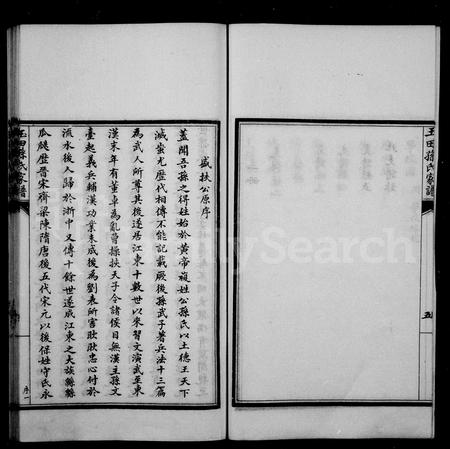 玉田孫氏家譜
五
盛扶公原序
蓋聞吾孫之得姓始於黃帝複姓公孫氏以土德王天下
滅蚩尤歷代相傳不能記載厥後孫武子著兵法十三篇
為武人所尊為其後遂居江東十數世以來習文演武至東
漢末年有董卓為亂曹操挾天子令諸侯目無漢主孫文
臺起義兵輔漢功業未成後為劉表所害耿耿忠心付於
流水後人歸於浙中又傳十餘世遂成江東之大族緜緜
瓜瓞歷晉宋齊梁陳隋唐後五代宋元以後保姓守氏永
玉田孫氏家譜
序一
FamilySearch